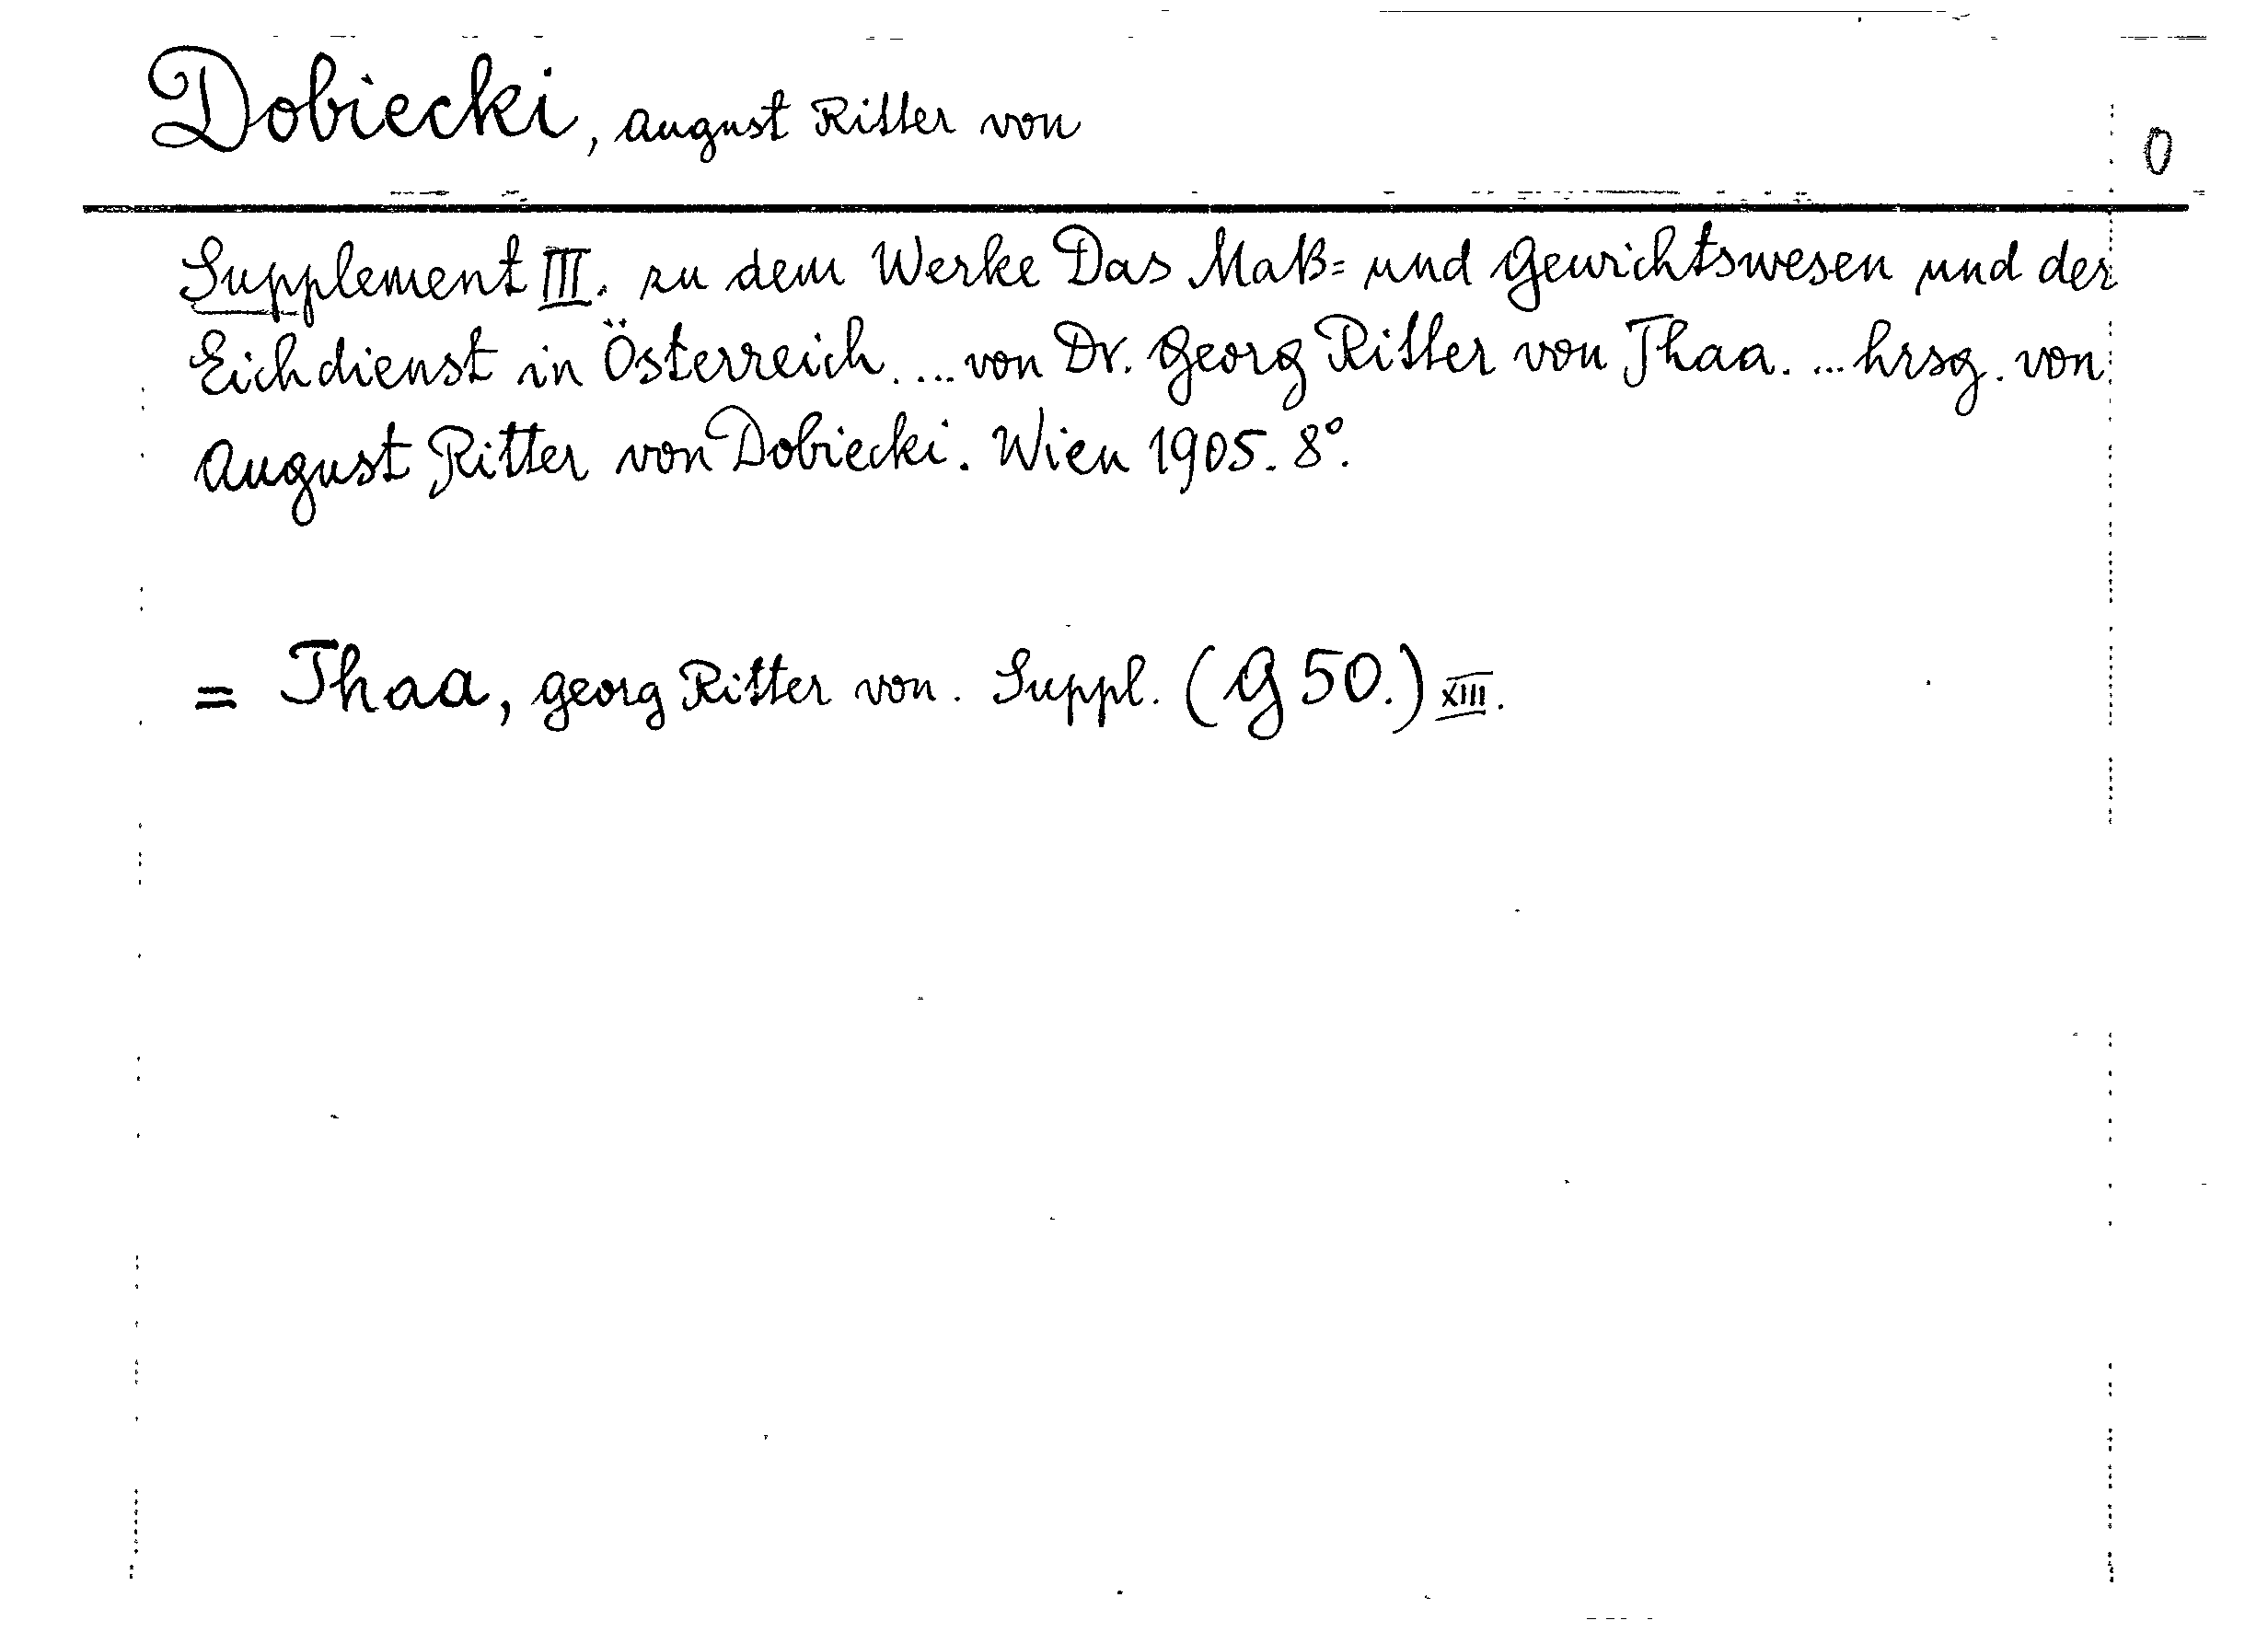 Dobiecki, August Ritter von
0
Supplement III. zu dem Werke Das Maß= und Gewichtswesen und der
Eichdienst in Österreich. ... von Dr. Georg Ritter von Thaa. ... hrsg. von
August Ritter von Dobiecki. Wien 1905. 8°.
= Thaa, Georg Ritter von. Suppl. (G 50.) XIII.